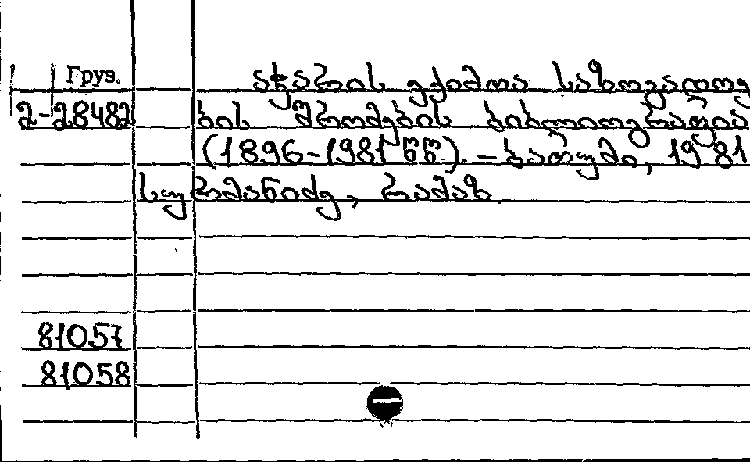 Груз.
აჭარის ექიმთა საზოგადოე
2-28482
ბის შრომების ბიბლიოგრაფია
(1896-1981 წწ). – ბათუმი, 1981
სურმანიძე, რამაზ
81057
81058